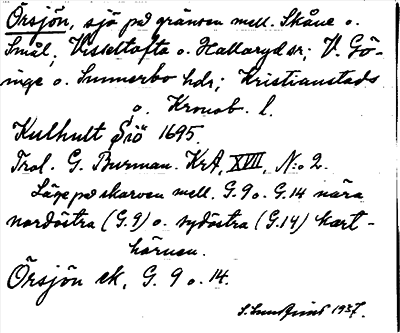 Örsjön, sjö på gränsen mell. Skåne o.
Smål., Visseltofta o. Hallaryd sr; V. Gö-
inge o. Sunnerbo hdr; Kristianstads
o. Kronob. l.
Kulhult Siö 1695.
Trol. G. Burman. KrA, XVII, N:o 2.
Läge på skarven mell. G.9 o. G.14 nära
nordöstra (G.9) o. sydöstra (G.14) kart-
hörnen.
Örsjön ek, G. 9 o. 14.
1937.